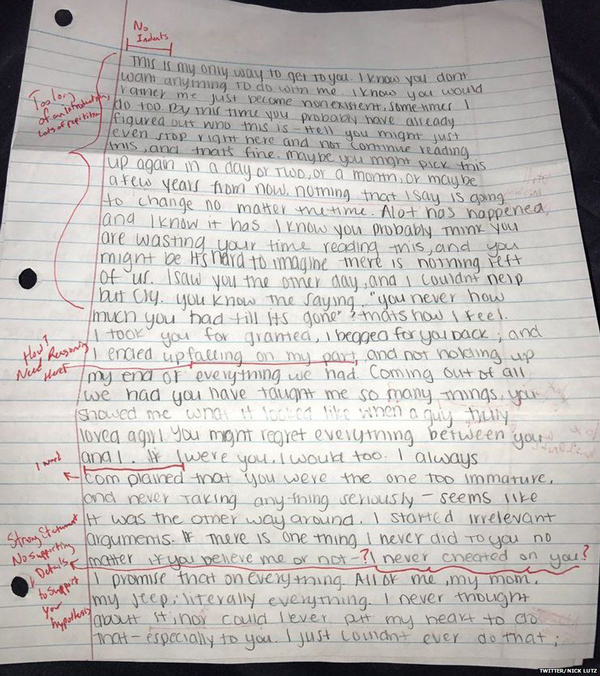 No
Indents
This is my only way to get to you. I know you dont
want anything to do with me. I know you would
rather me just become nonexistent, sometimes I
Too long
of an introduction,
Lots of repitition
do too. By this time you probably have already
figured out who this is - Hell you might just
even stop right here and not continue reading
this, and thats fine. maybe you might pick this
up again in a day or two, or a month, or maybe
a few years from now. nothing that I say is going
to change no matter the time. Alot has happened,
and I know it has. I know you probably think you
are wasting your time reading this, and you
might be. It's hard to imagine there is nothing left
of us. I saw you the other day, and I couldnt help
but cry. you know the saying, "you never how
much you had till its gone" thats how I feel.
I took you for granted, I begged for you back; and
How?
Need Reasoning
Here!
I ended up faceing on my part, and not holding up
my end of everything we had. Coming out of all
we had you have taught me so many things, you
showed me what it looked like when a guy truly
loved a girl. You might regret everything between you
and I. If I were you, I would too. I always
complained that you were the one too immature,
and never taking any-thing seriously - seems like
it was the other way around. I started irrelevant
Strong Statement
No supporting
Details
to support
your
hypothesis
arguments. If there is one thing I never did to you no
matter if you believe me or not -? I never cheated on you?
I promise that on everything. All of me, my mom,
my step; literally everything. I never thought
about it, nor could I ever put my heart to do
that - especially to you. I just couldnt ever do that;
TWITTER/NICK LUTZ